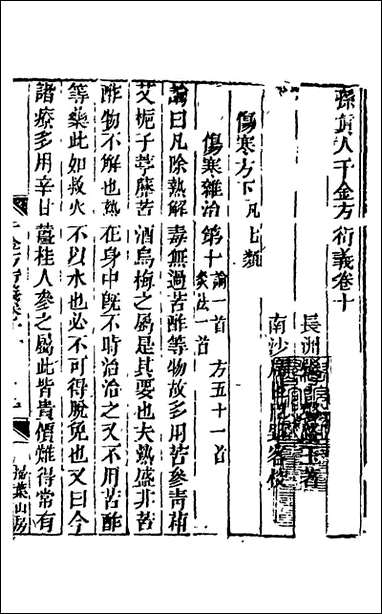 孫真人千金方衍義卷十
長洲
南沙
傷寒方下凡七類
傷寒雜治第十論一首 方五十一首 灸法一首
論曰凡除熱解毒無過苦酢等物故多用苦參青葙
艾梔子葶藶苦酒烏梅之屬是其要也夫熱盛非苦
酢物不解也熱在身中既不時治治之又不用苦酢
等藥此如救火不以水也必不可得脫免也又曰今
諸療多用辛甘薑桂人參之屬此皆貴價難得常有
掃葉山房